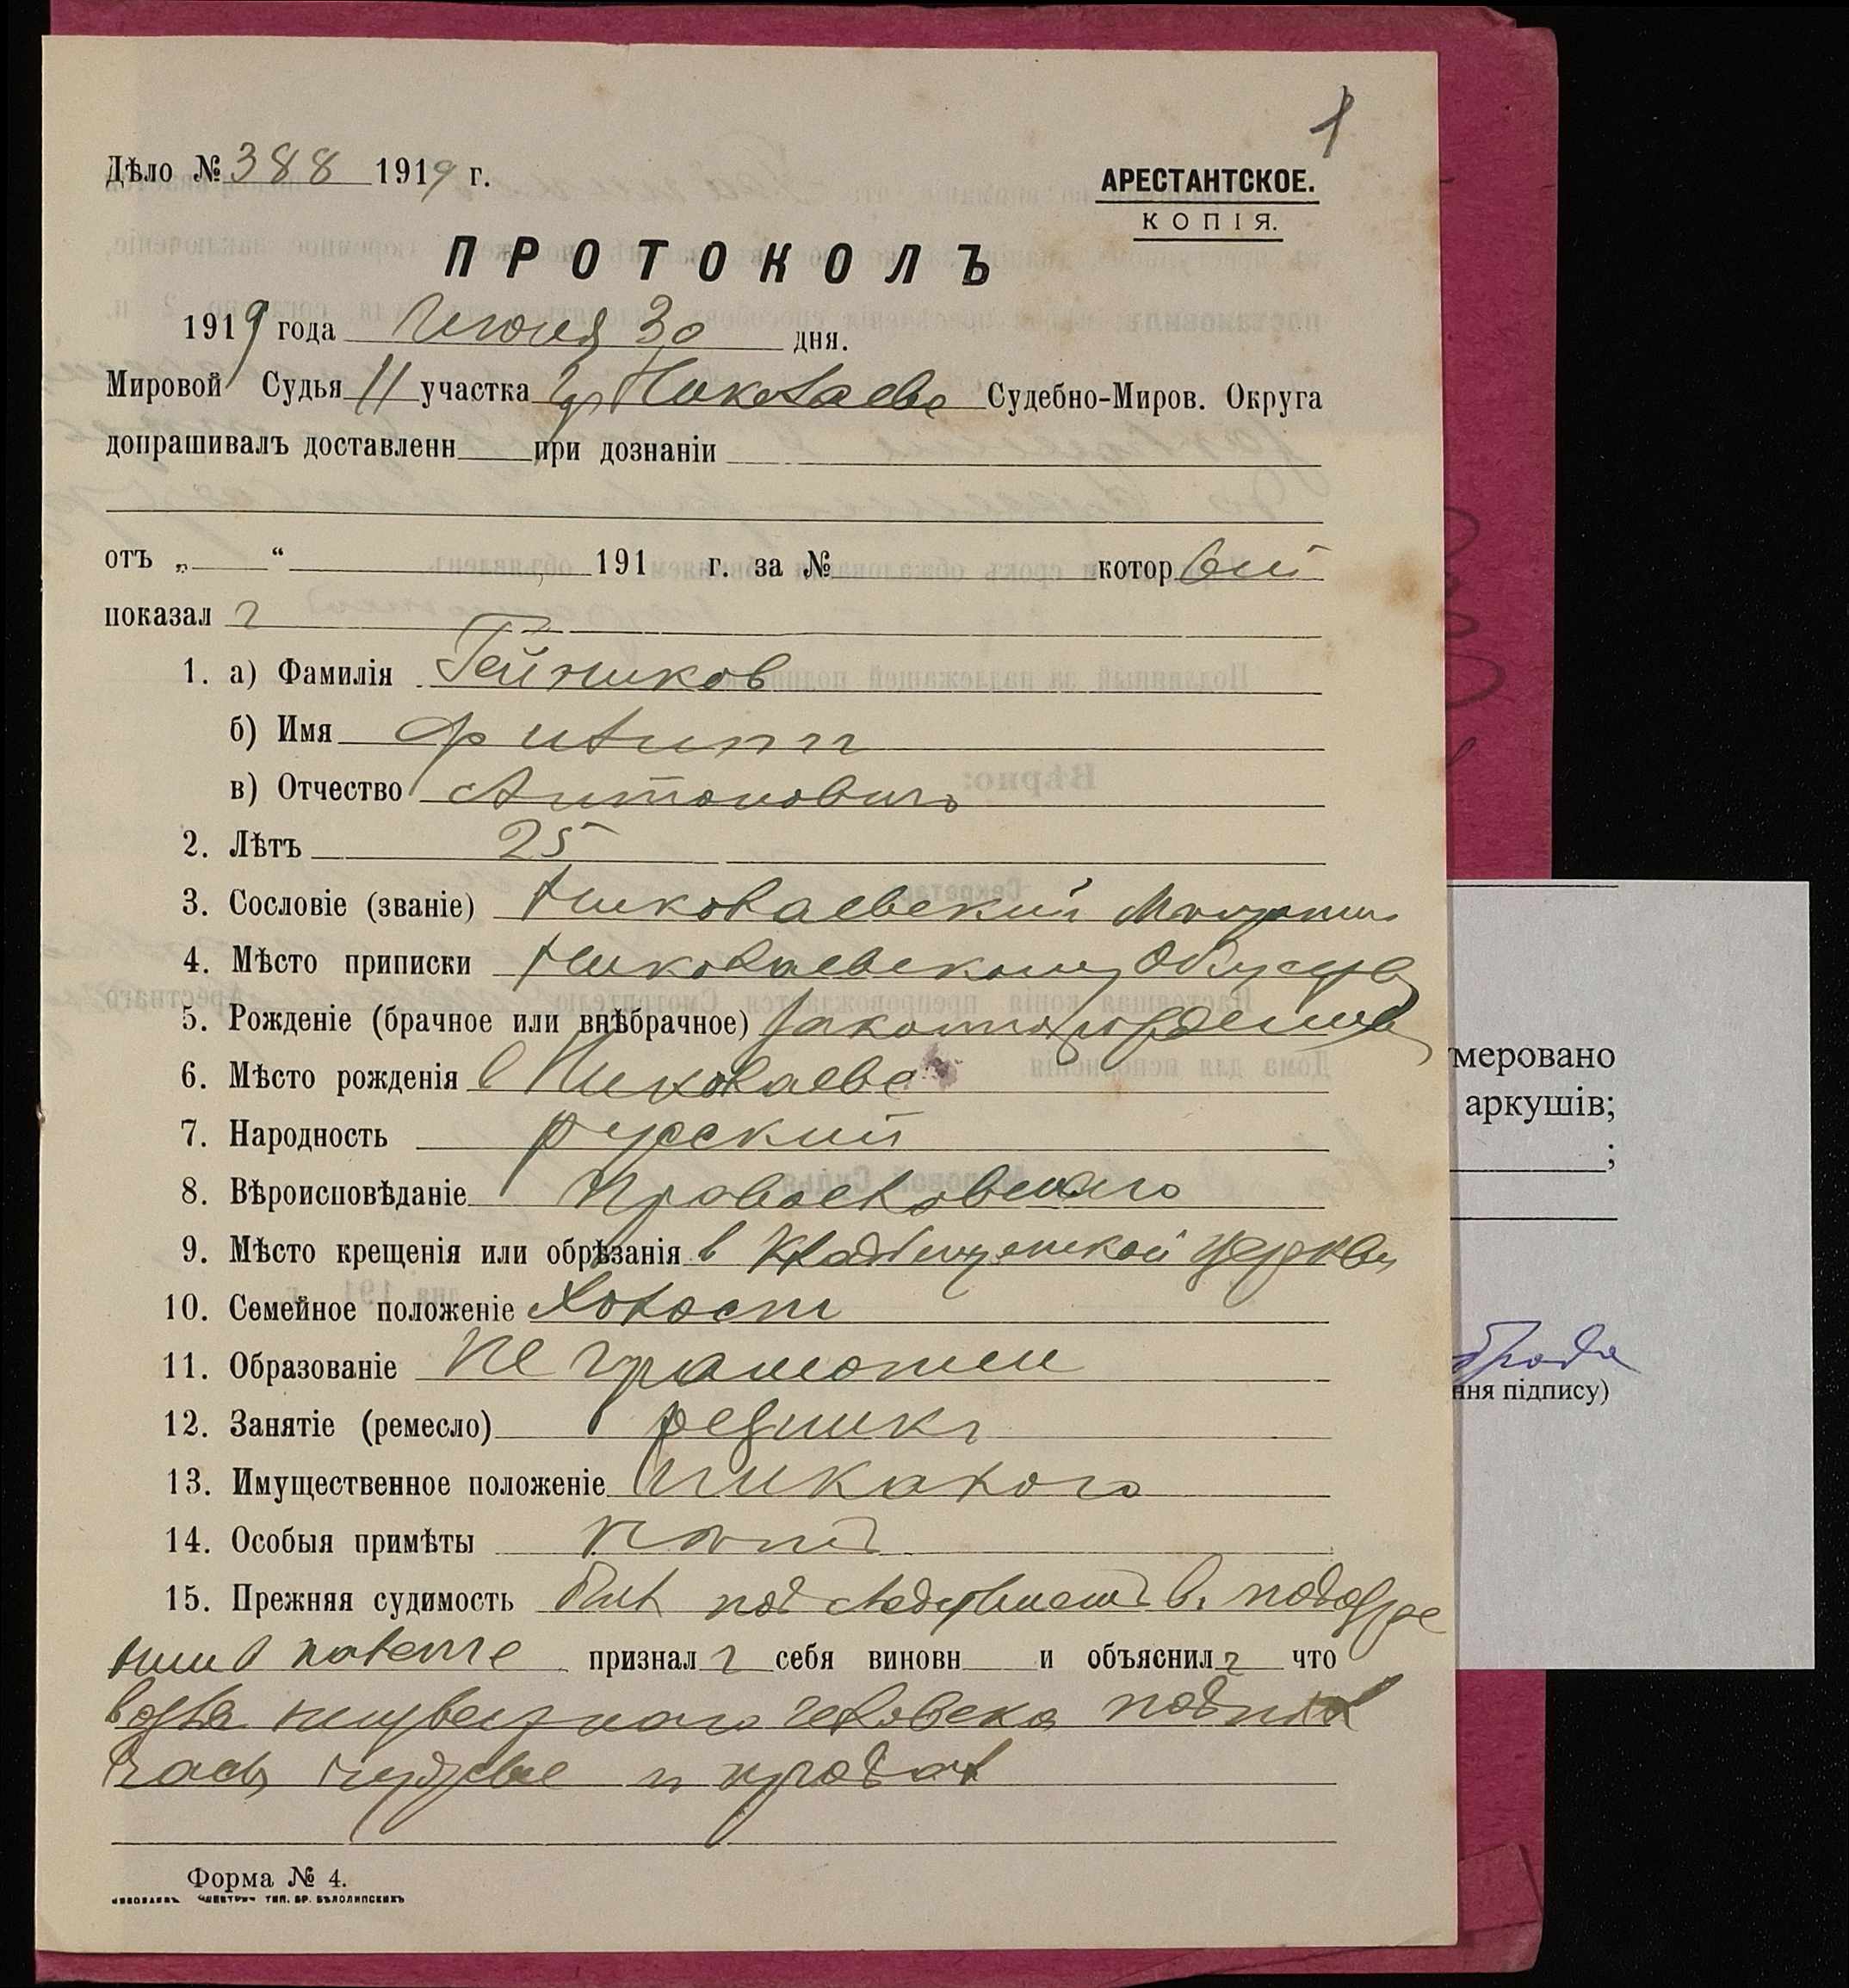 1
Дѣло № 388 1919 г.
АРЕСТАНТСКОЕ.
КОПІЯ.
ПРОТОКОЛЪ
1919 года Июня 30 дня.
Мировой Судья 11 участка гр Николаева Судебно-Миров. Округа
допрашивалъ доставленн при дознаніи
отъ „ “ 191 г. за № который
показал ъ
1. а) Фамилія Гейников
б) Имя Филипп
в) Отчество Антонович
2. Лѣтъ 25
3. Сословіе (званіе) Николаевский Мещанин
4. Мѣсто приписки Николаевскому Обществ
5. Рожденіе (брачное или внѣбрачное) законнорожденный
6. Мѣсто рожденія в Николаеве
7. Народность русский
8. Вѣроисповѣданіе Православнаго
9. Мѣсто крещенія или обрѣзанія в Кладбищенской церкви
10. Семейное положеніе Холост
11. Образованіе не грамотный
12. Занятіе (ремесло) резникъ
13. Имущественное положеніе никакого
14. Особыя примѣты нет
15. Прежняя судимость был под следствием в. подозре
нии в признал ъ себя виновн и объяснилъ что
взял неизвестного человека
часы и продал
Форма № 4.
НИКОЛАЕВЪ ТИП. БР. БѢЛОЛИПСКИХЪ
меровано
аркушів;
;
ння підпису)